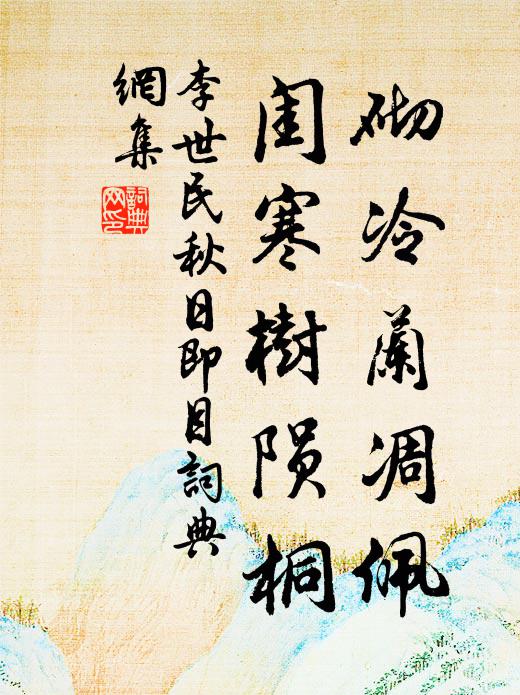 砌冷蘭凋佩
闺寒樹陨桐
李世民秋日即目詞典
網集
詞典
网印